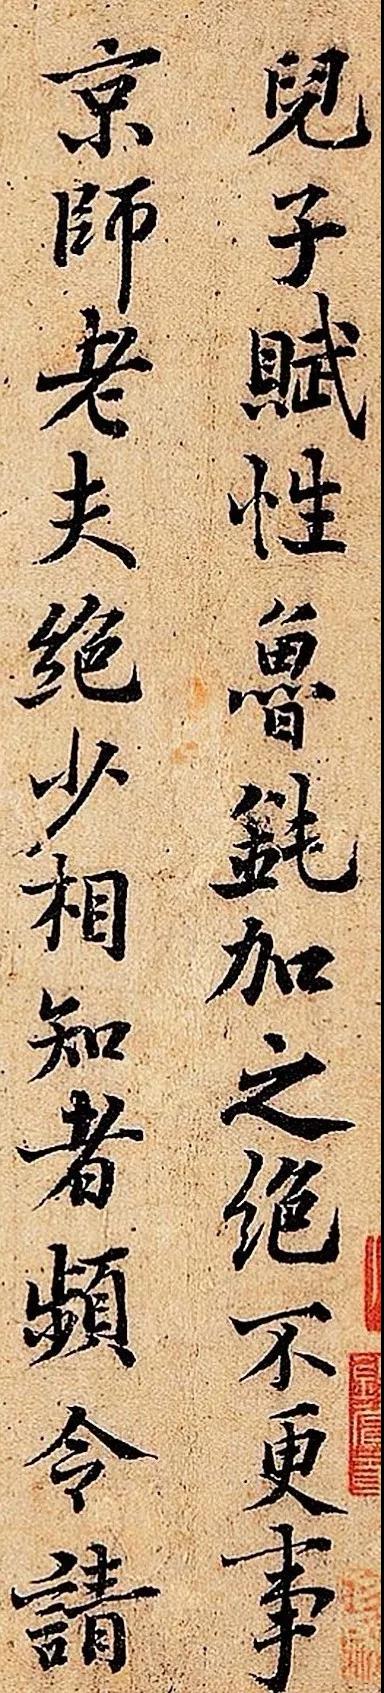 兒子賦性魯鈍加之絶不更事
京師老夫絶少相知者頻令請